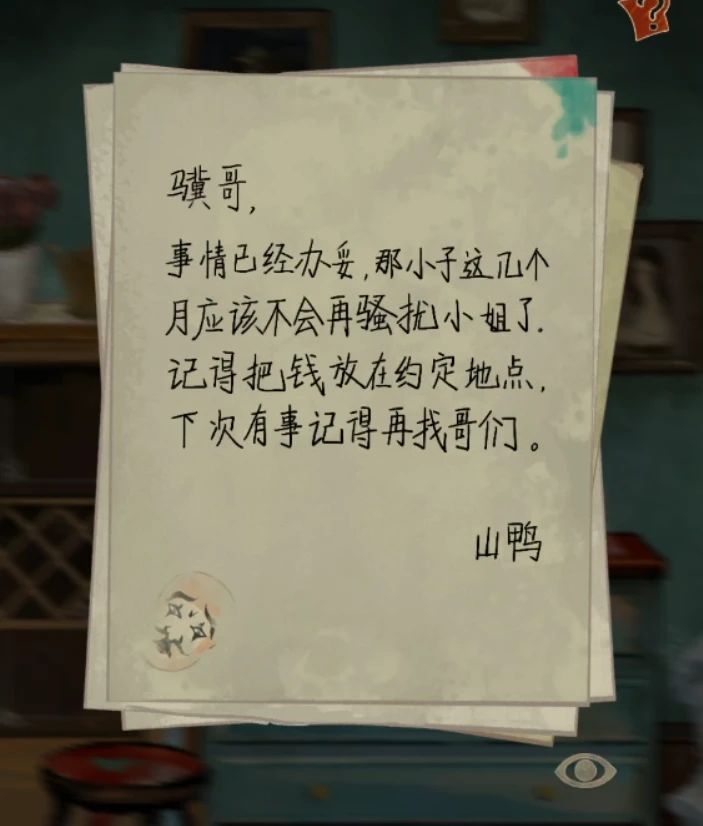 骥哥,
事情已经办妥,那小子这几个
月应该不会再骚扰小姐了.
记得把钱放在约定地点,
下次有事记得再找哥们。
山鸭
?